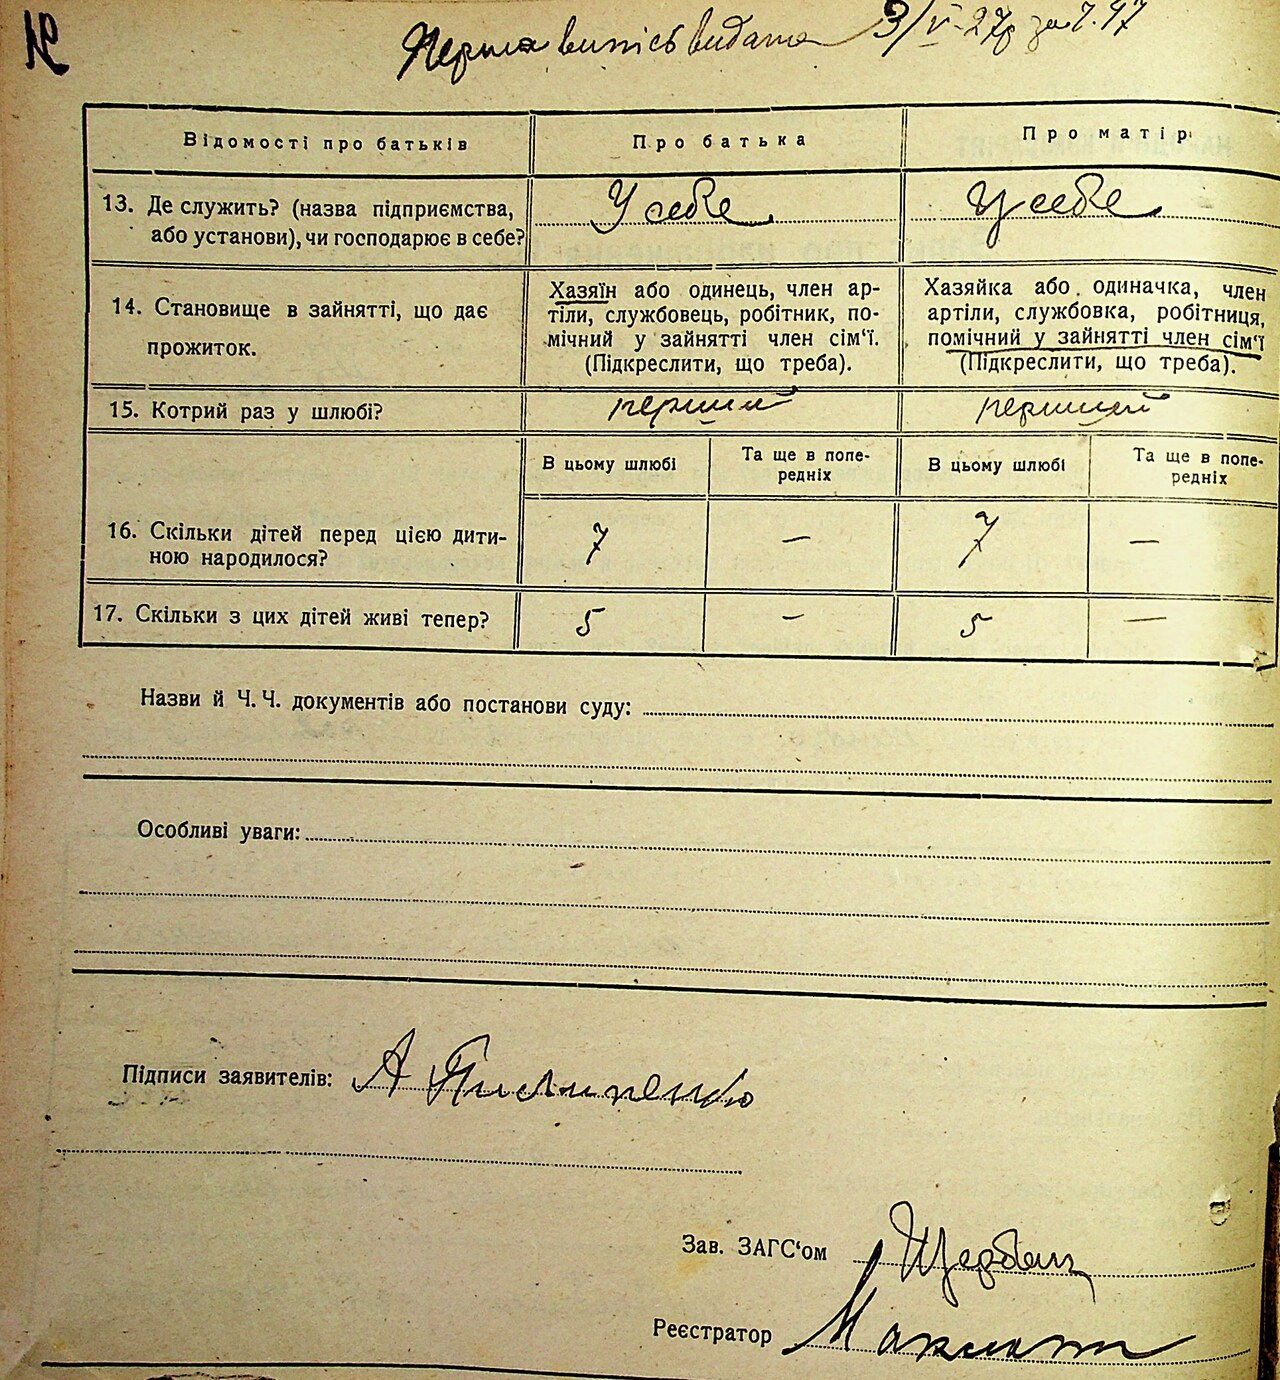 Перша випись видана 3/V-27р за ч. 47
Відомості про батьків
Про батька
Про матір
13. Де служить? (назва підприємства,
або установи), чи господарює в себе?
У себе
У себе
14. Становище в зайнятті, що дає
прожиток.
Хазяїн або одинець, член ар-
тіли, службовець, робітник, по-
мічний у зайнятті член сім'ї.
(Підкреслити, що треба).
Хазяйка або одиначка, член
артіли, службовка, робітниця,
помічний у зайнятті член сім'ї
(Підкреслити, що треба).
15. Котрий раз у шлюбі?
перший
перший
В цьому шлюбі
Та ще в попе-
редніх
В цьому шлюбі
Та ще в попе-
редніх
16. Скільки дітей перед цією дити-
ною народилося?
7
—
7
—
17. Скільки з цих дітей живі тепер?
5
—
5
—
Назви й Ч. Ч. документів або постанови суду:
Особливі уваги:
Підписи заявителів: А Пилипенко
Зав. ЗАГС'ом Щербак
Реєстратор